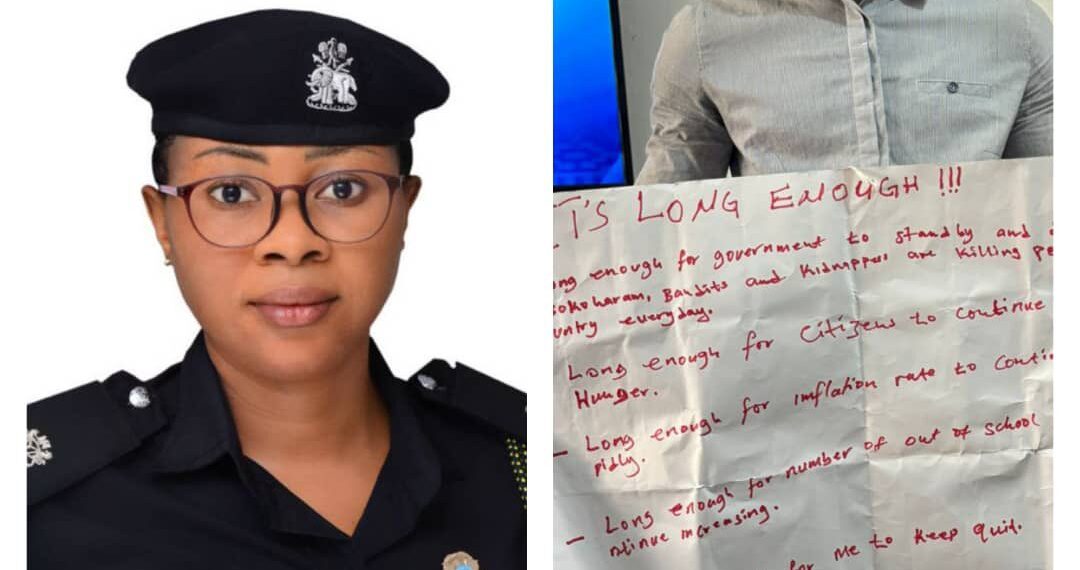 T'S LONG ENOUGH !!!
ong enough for government to standby and
okoharam, Bandits and Kidnappers are killing pe
untry everyday.
Long enough for citizens to continue
Hunger.
- Long enough for inflation rate to conti
pidly.
- Long enough for number of out of school
ntinue increasing.
for me to keep quit.